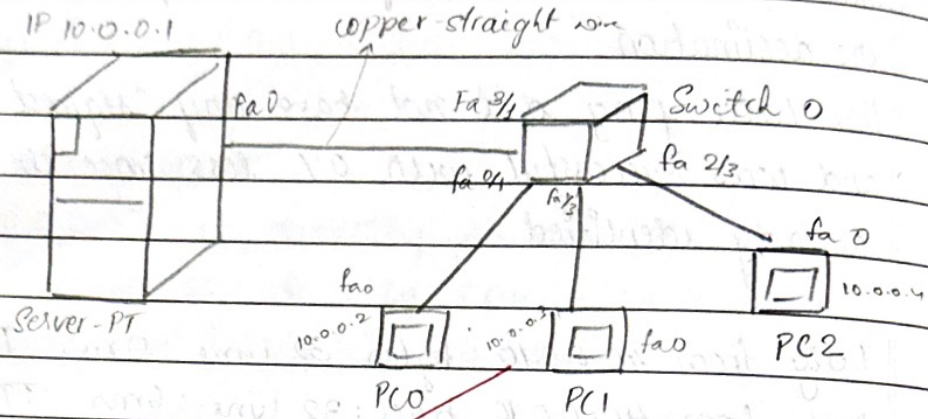 IP 10.0.0.1
copper-straight wire
fa0
Fa 3/1
Switch 0
fa 0/1
fa 1/3
fa 2/3
fa0
fa 0
10.0.0.4
Server-PT
10.0.0.2
10.0.0.3
fa0
PC2
PC0
PC1